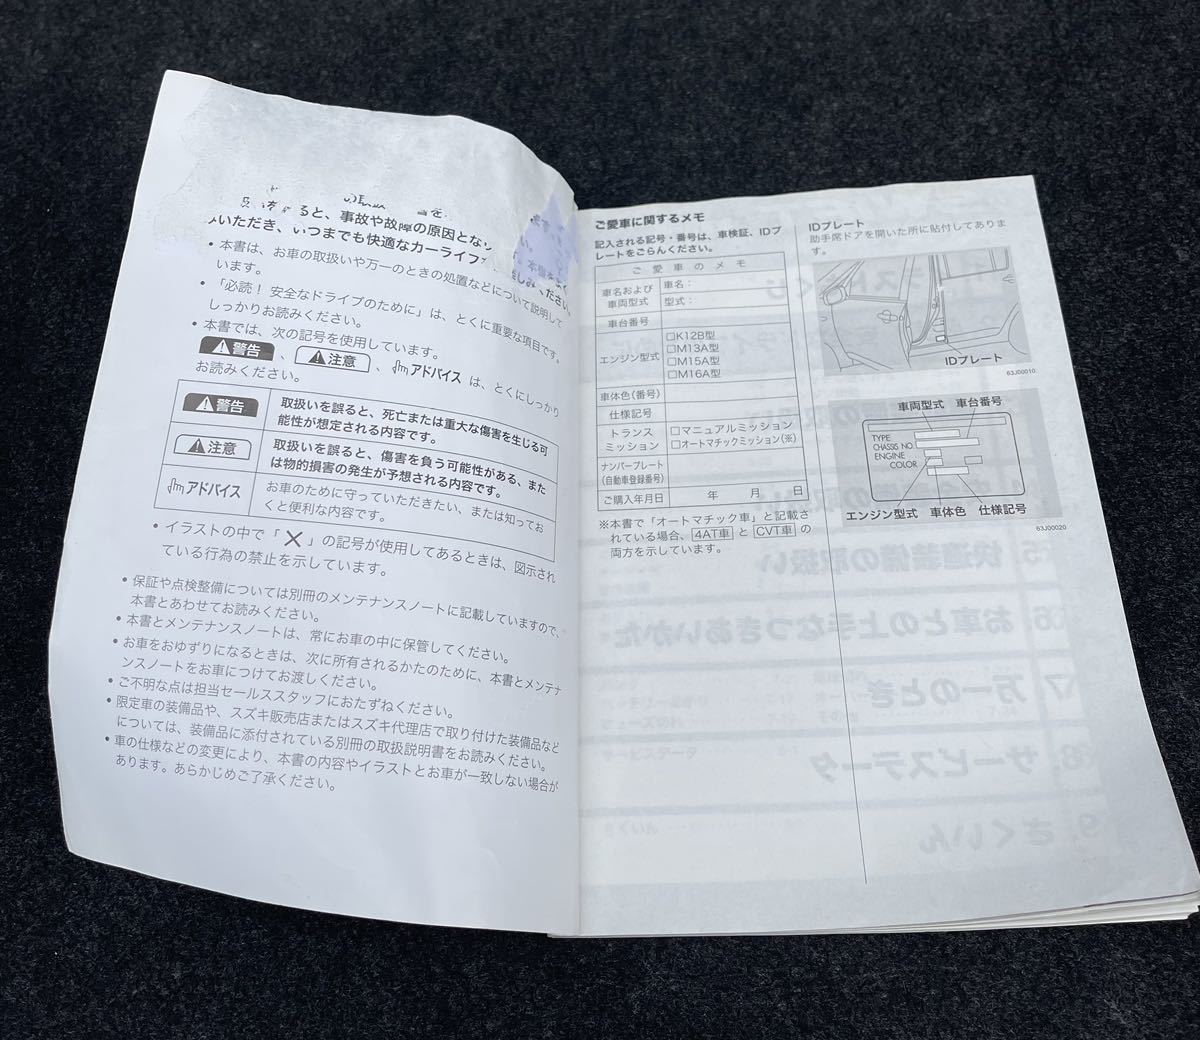 の取扱
ると、事故や故障の原因とな
いただき、いつまでも快適なカーライフ
ください。
• 本書は、お車の取扱いや万一のときの処置などについて説明して
います。
• 「必読! 安全なドライブのために」は、とくに重要な項目です。
しっかりお読みください。
• 本書では、次の記号を使用しています。
警告 、 注意 、 アドバイス は、とくにしっかり
お読みください。
警告
取扱いを誤ると、死亡または重大な傷害を生じる可
能性が想定される内容です。
注意
取扱いを誤ると、傷害を負う可能性がある、また
は物的損害の発生が予想される内容です。
アドバイス
お車のために守っていただきたい、または知ってお
くと便利な内容です。
• イラストの中で「 ✕ 」の記号が使用してあるときは、図示され
ている行為の禁止を示しています。
• 保証や点検整備については別冊のメンテナンスノートに記載していますので、
本書とあわせてお読みください。
• 本書とメンテナンスノートは、常にお車の中に保管してください。
• お車をおゆずりになるときは、次に所有されるかたのために、本書とメンテナ
ンスノートをお車につけてお渡しください。
• ご不明な点は担当セールススタッフにおたずねください。
• 限定車の装備品や、スズキ販売店またはスズキ代理店で取り付けた装備品など
については、装備品に添付されている別冊の取扱説明書をお読みください。
• 車の仕様などの変更により、本書の内容やイラストとお車が一致しない場合が
あります。あらかじめご了承ください。
ご愛車に関するメモ
記入される記号・番号は、車検証、IDプ
レートをごらんください。
ご愛車のメモ
車名および
車両型式
車名:
型式:
車台番号
エンジン型式
□K12B型
□M13A型
□M15A型
□M16A型
車体色(番号)
仕様記号
トランス
ミッション
□マニュアルミッション
□オートマチックミッション(※)
ナンバープレート
(自動車登録番号)
ご購入年月日
年 月 日
※本書で「オートマチック車」と記載さ
れている場合、4AT車 と CVT車 の
両方を示しています。
IDプレート
助手席ドアを開いた所に貼付してありま
す。
IDプレート
63J00010
車両型式 車台番号
TYPE
CHASSIS NO.
ENGINE
COLOR
エンジン型式 車体色 仕様記号
63J00020